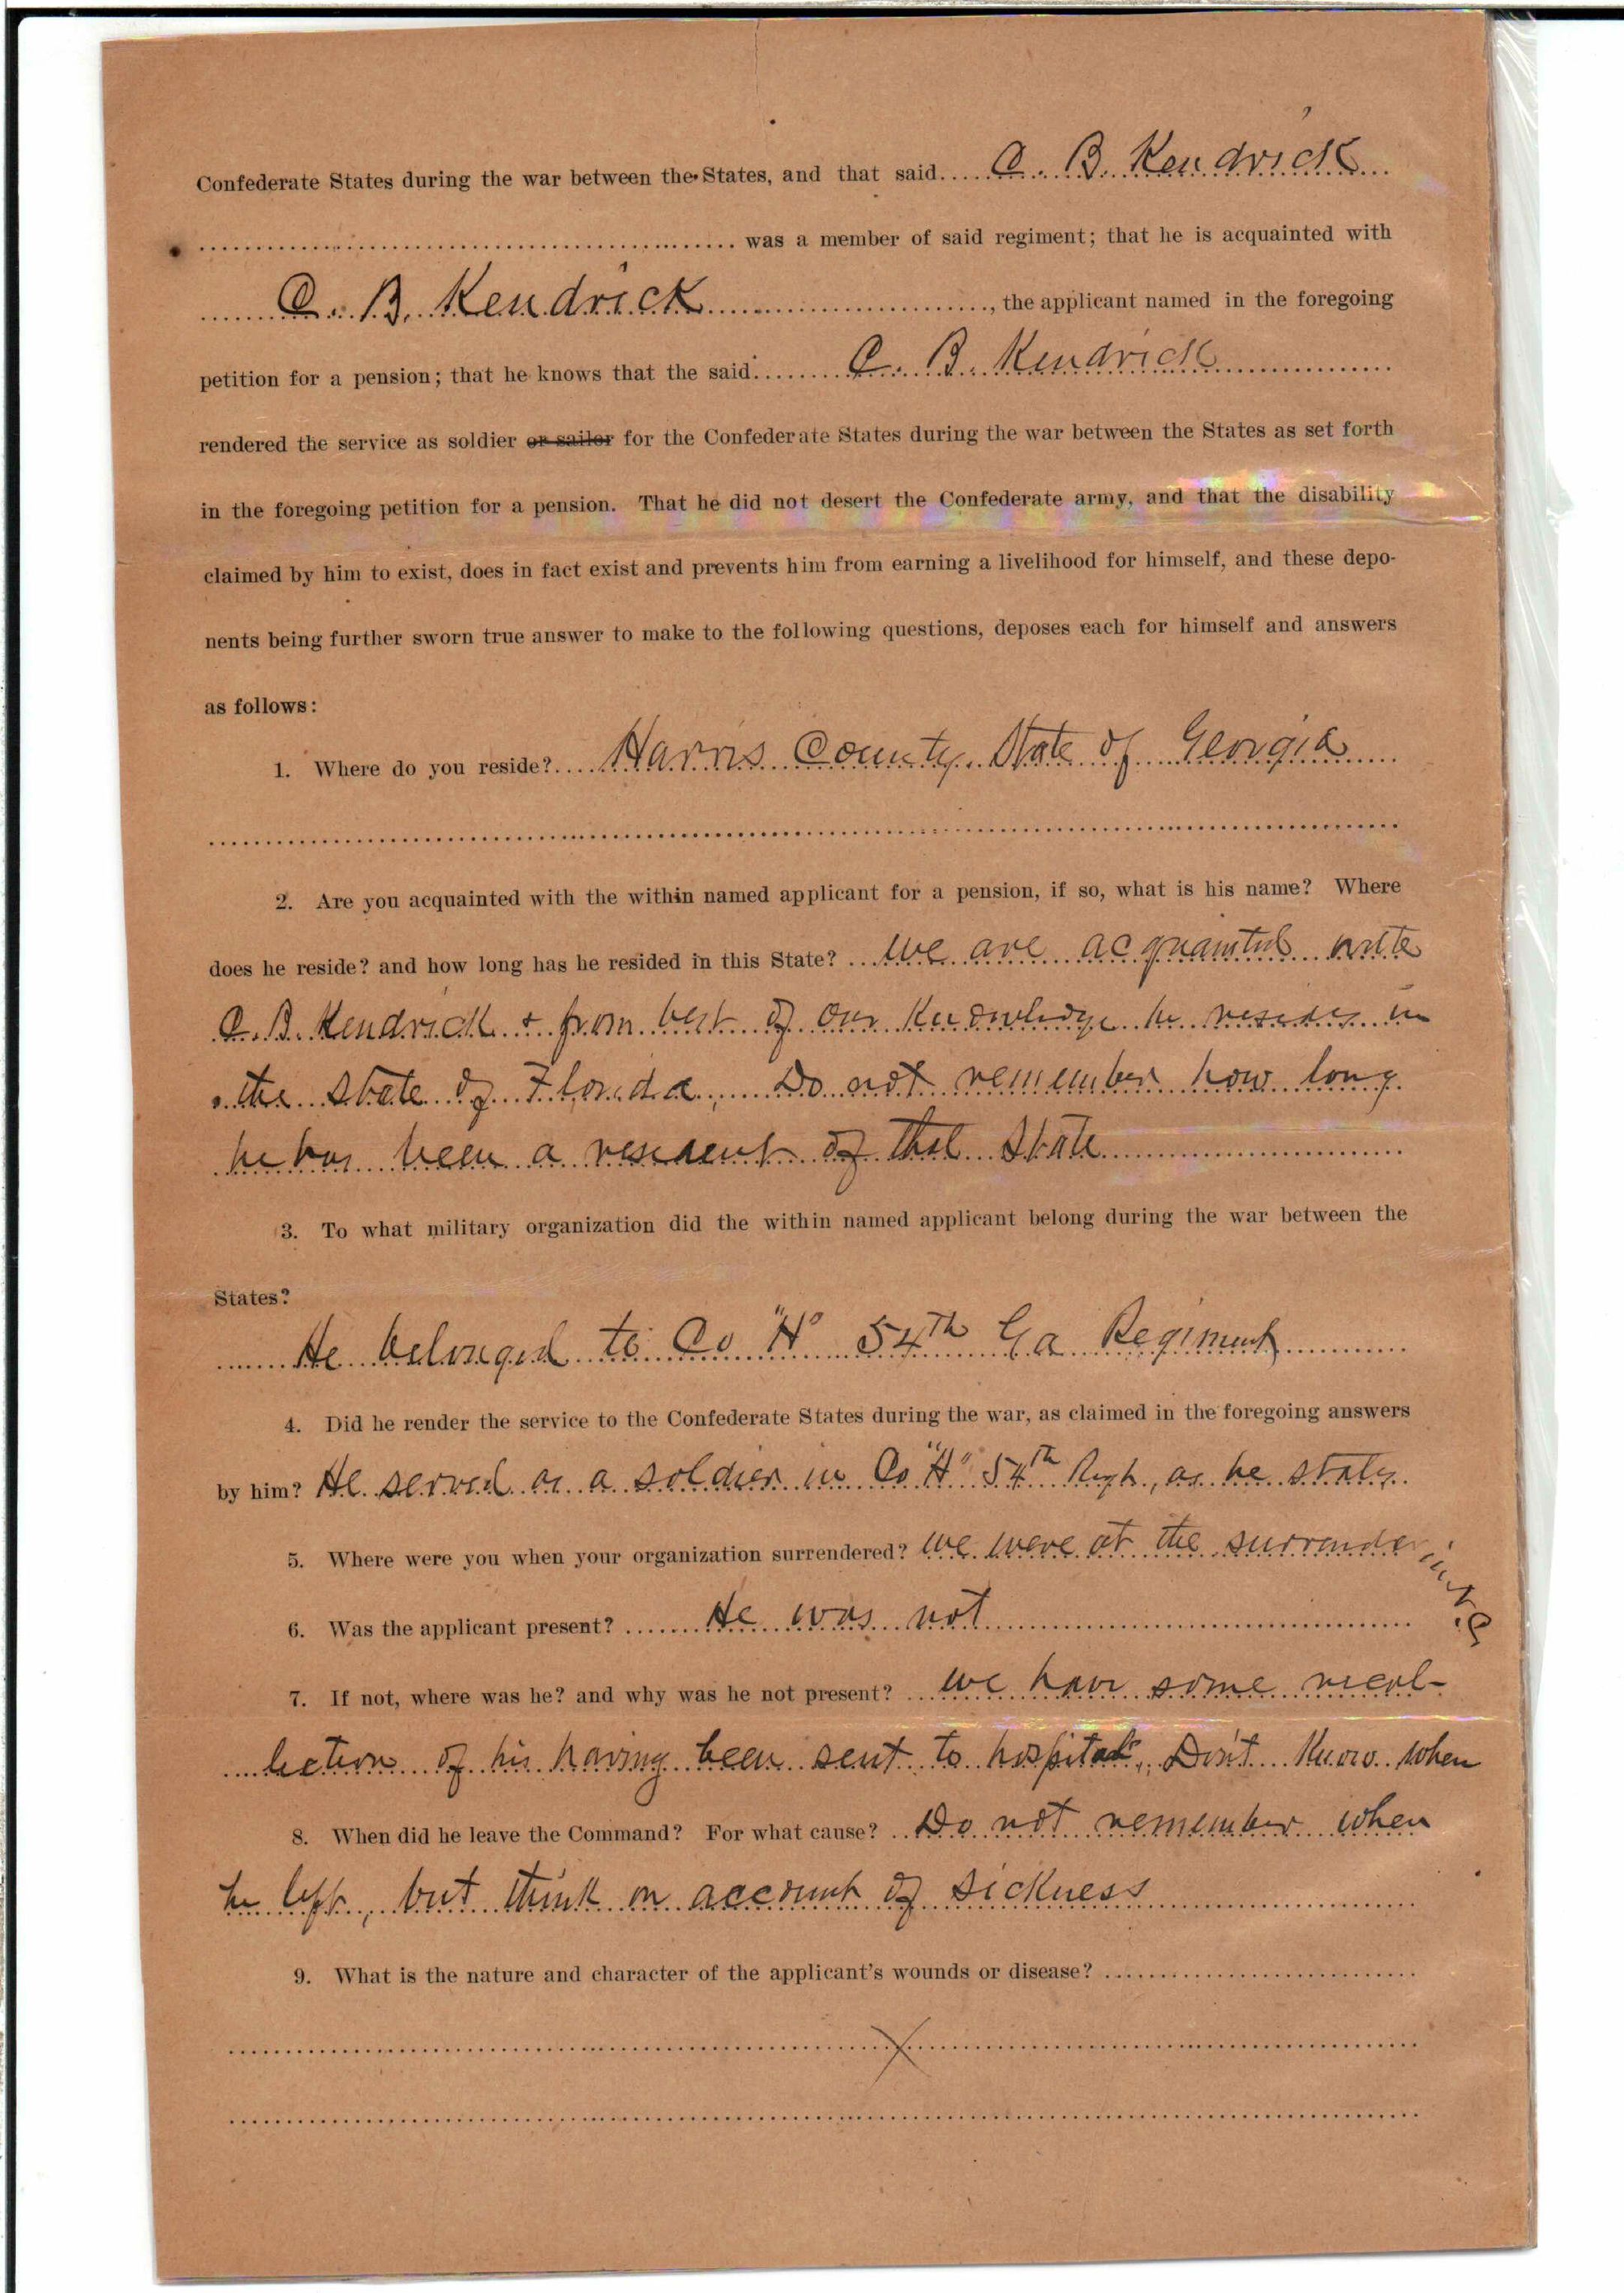 Confederate States during the war between the States, and that said C. B. Kendrick
was a member of said regiment; that he is acquainted with
C. B. Kendrick, the applicant named in the foregoing
petition for a pension; that he knows that the said C. B. Kendrick
rendered the service as soldier or sailor for the Confederate States during the war between the States as set forth
in the foregoing petition for a pension. That he did not desert the Confederate army, and that the disability
claimed by him to exist, does in fact exist and prevents him from earning a livelihood for himself, and these depo-
nents being further sworn true answer to make to the following questions, deposes each for himself and answers
as follows:
1. Where do you reside? Harris County State of Georgia
2. Are you acquainted with the within named applicant for a pension, if so, what is his name? Where
does he reside? and how long has he resided in this State? We are acquainted with
C. B. Kendrick & from best of our Knowledge he resides in
the State of Florida, Do not remember how long
he has been a resident of that State
3. To what military organization did the within named applicant belong during the war between the
States?
He belonged to Co "H" 54th Ga Regiment
4. Did he render the service to the Confederate States during the war, as claimed in the foregoing answers
by him? He served as a soldier in Co "H" 54th Regt, as he states
5. Where were you when your organization surrendered? We were at the surrender in N.C.
6. Was the applicant present? He was not
7. If not, where was he? and why was he not present? We have some recol-
lection of his having been sent to hospital, Don't Know when
8. When did he leave the Command? For what cause? Do not remember when
he left, but think on account of sickness
9. What is the nature and character of the applicant's wounds or disease?
X